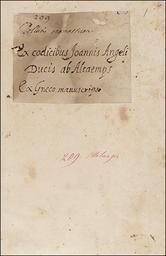 209
Ex codicibus Joannis Angeli
Ducis ab Altaemps
Ex Graeco manuscripto
209